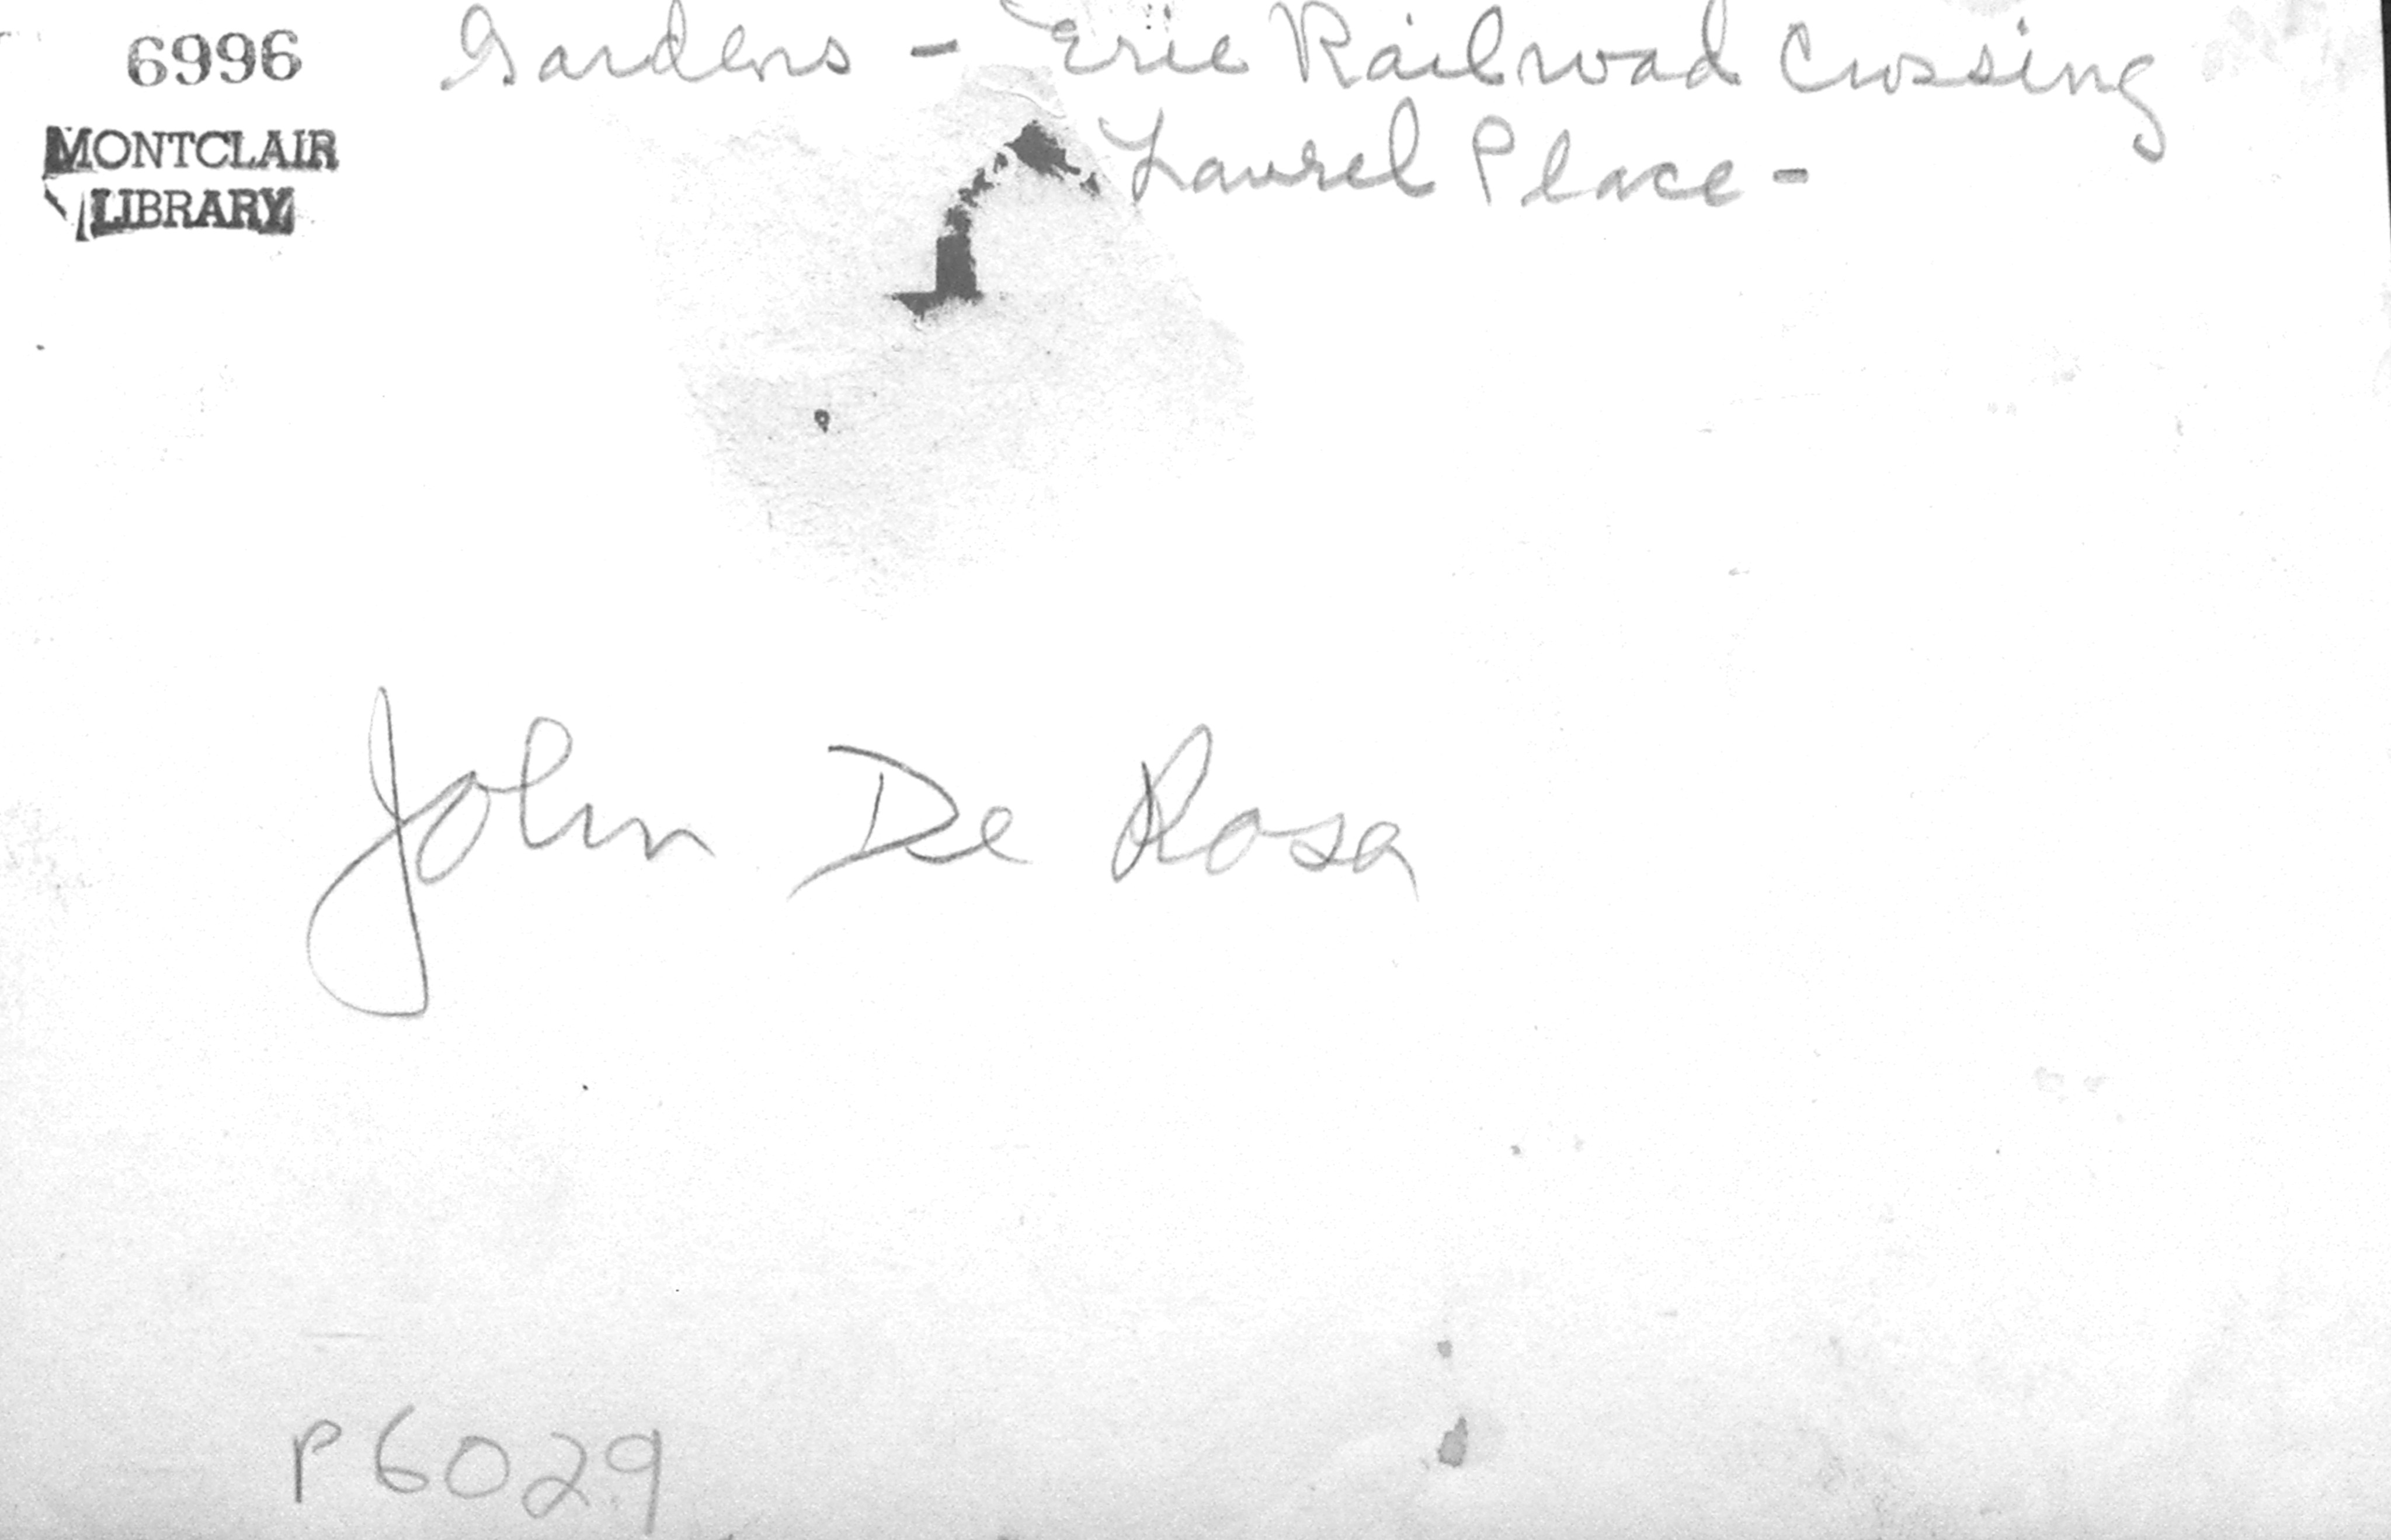 6996 Gardens - Erie Railroad Crossing
MONTCLAIR Laurel Place -
LIBRARY
John De Rosa
P6029